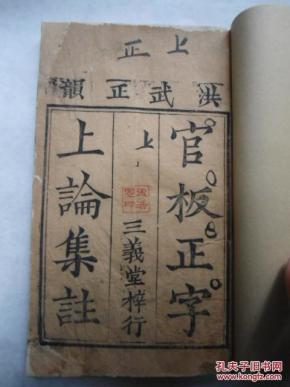 上正
洪武正韻
官板正字
上
三義堂梓行
上論集註
孔夫子旧书网